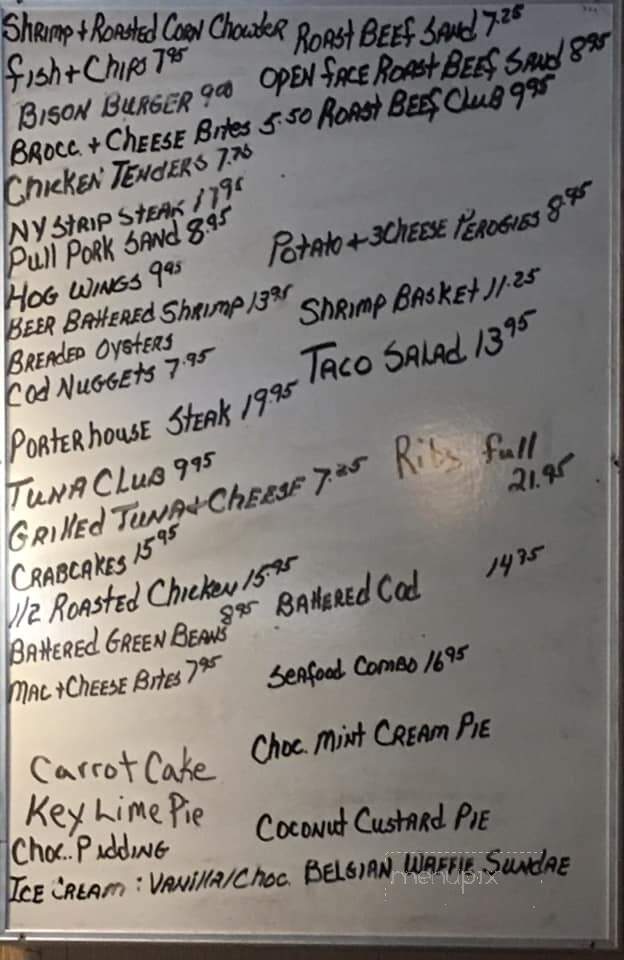 Shrimp + Roasted Corn Chowder Roast Beef Sand 7.25
Fish + Chips 7.95 Open Face Roast Beef Sand 8.95
Bison Burger 9.00 Roast Beef Club 9.95
Brocc. + Cheese Bites 5.50
Chicken Tenders
NY Strip Steak 17.95
Pull Pork Sand 8.95 Potato + 3 Cheese Perogies 8.95
Hog Wings 9.95
Beer Battered Shrimp 13.95 Shrimp Basket 11.25
Breaded Oysters
Cod Nuggets 7.95 Taco Salad 13.95
Porterhouse Steak 19.95
Tuna Club 9.95 Ribs full
Grilled Tuna + Cheese 7.25 21.95
Crabcakes 15.95
1/2 Roasted Chicken 15.95 Battered Cod
Battered Green Beans 8.95
Mac + Cheese Bites 7.95 Seafood Combo 16.95
Carrot Cake Choc. Mint Cream Pie
Key Lime Pie Coconut Custard Pie
Choc.. Pudding
Ice Cream: Vanilla/Choc. Belgian Waffle Sundae
menupix